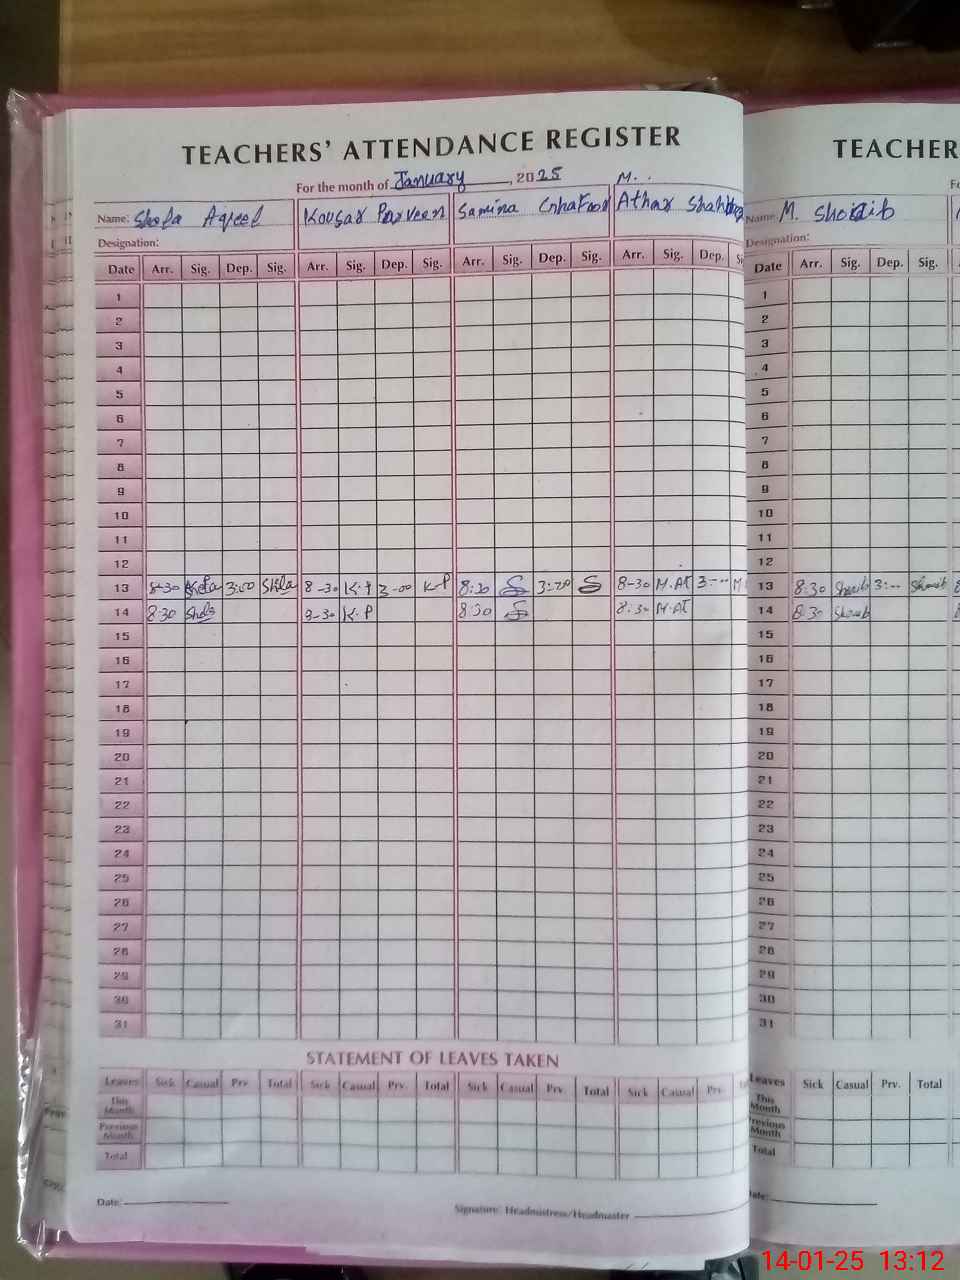 TEACHERS' ATTENDANCE REGISTER
For the month of January, 2025
Name: Shela Aqeel Kousar Parveen Samina Ghafoor M. Athar
Designation:
Date Arr. Sig. Dep. Sig. Arr. Sig. Dep. Sig. Arr. Sig. Dep. Sig. Arr. Sig. Dep.
1
2
3
4
5
6
7
8
9
10
11
12
13 8-30 Shela 3:00 Shela 8-30 K.P 3-00 K-P 8:30 S 3:20 S 8-30 M.AT 3:-- M
14 8:30 Shela 8-30 K.P 8:30 S 8:30 M.AT
15
16
17
18
19
20
21
22
23
24
25
26
27
28
29
30
31
STATEMENT OF LEAVES TAKEN
Leaves Sick Casual Prv. Total Sick Casual Prv. Total Sick Casual Prv. Total Sick Casual Prv.
This Month
Previous Month
Total
Date:
Signature: Headmistress/Headmaster
TEACHER
Name: M. Shoaib
Designation:
Date Arr. Sig. Dep. Sig.
1
2
3
4
5
6
7
8
9
10
11
12
13 8:30 Shoaib 3:-- Shoaib
14 8:30 Shoaib
15
16
17
18
19
20
21
22
23
24
25
26
27
28
29
30
31
Leaves Sick Casual Prv. Total
This Month
Previous Month
Total
14-01-25 13:12